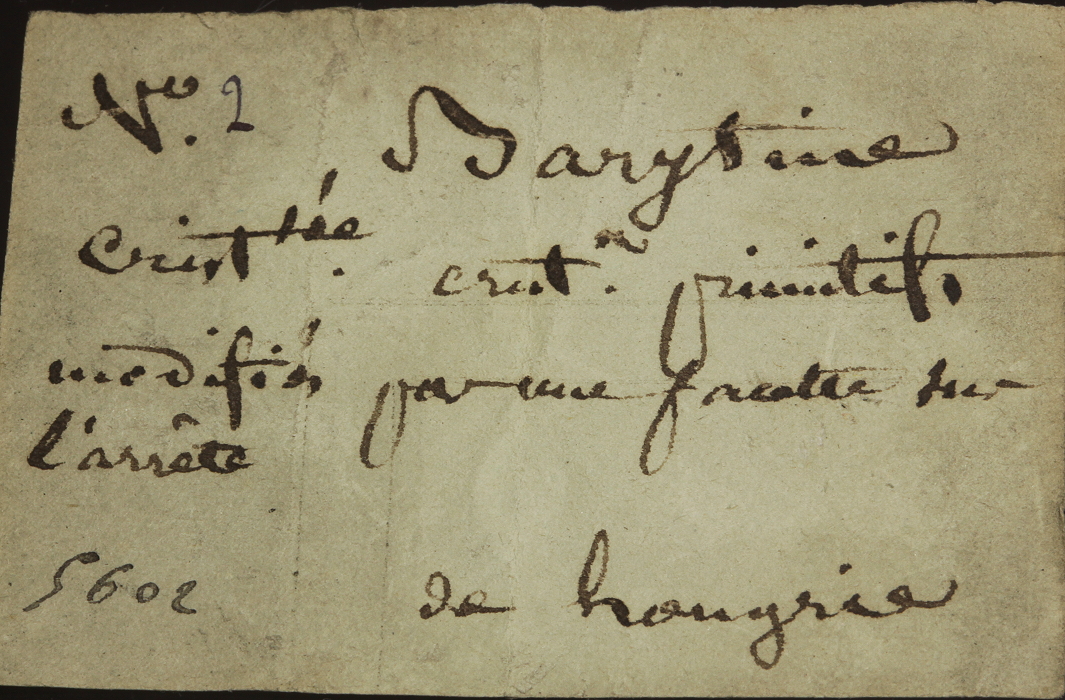 No. 2 Barytine
Cristée. crist.x primitifs
modifiés par une facette sur
l'arrête
5602 de hongrie